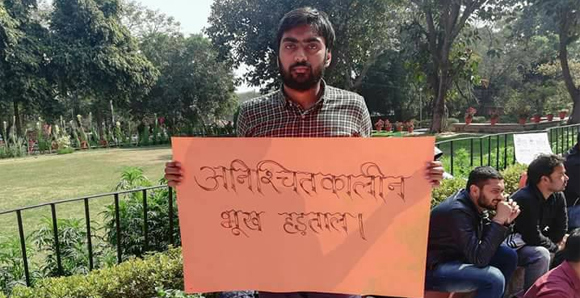 अनिश्चितकालीन
भूख हड़ताल।